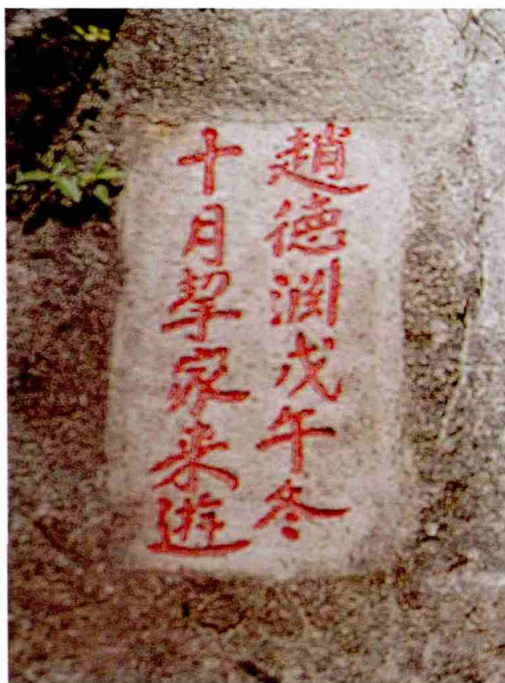 趙德渊戊午冬
十月挈家来遊